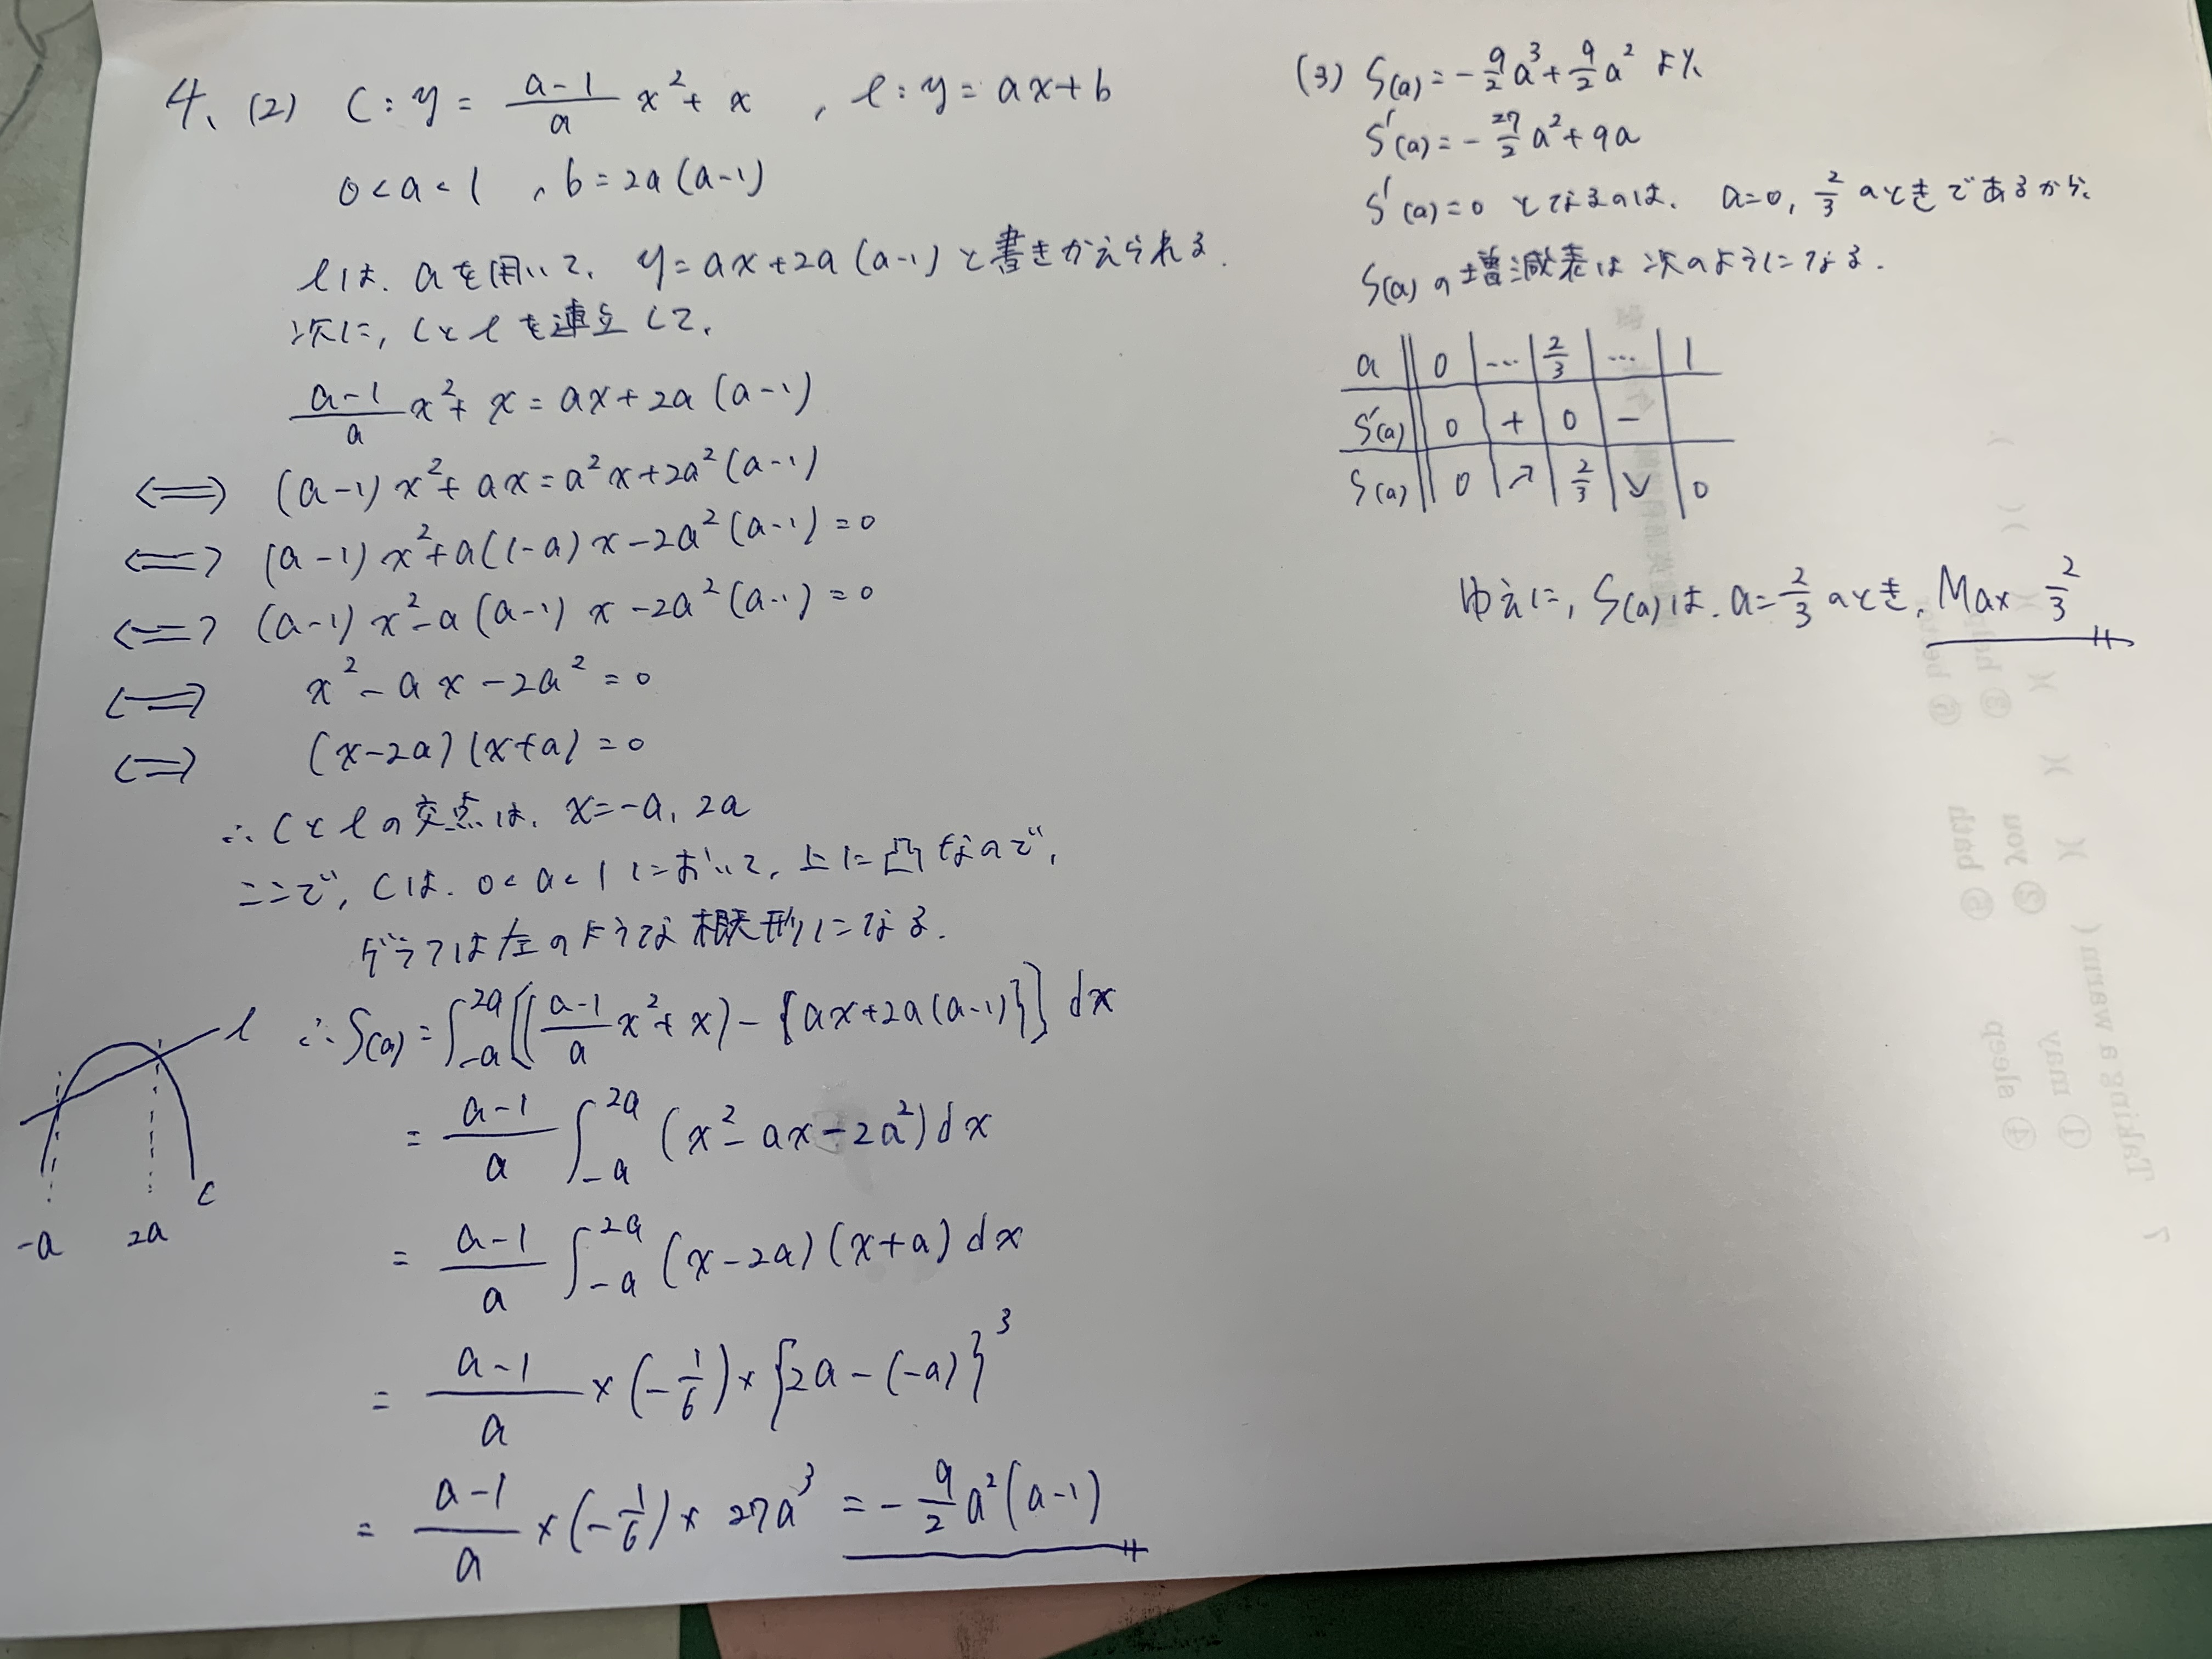 4、(2) C:y=(a-1)/a x²+x , l:y=ax+b
0<a<1 , b=2a(a-1)
lは、aを用いて、y=ax+2a(a-1)と書きかえられる.
次に, Cとlを連立して、
(a-1)/a x²+x=ax+2a(a-1)
⟺ (a-1)x²+ax=a²x+2a²(a-1)
⟺ (a-1)x²+a(1-a)x-2a²(a-1)=0
⟺ (a-1)x²-a(a-1)x-2a²(a-1)=0
⟺ x²-ax-2a²=0
⟺ (x-2a)(x+a)=0
∴Cとlの交点は、x=-a, 2a
ここで, Cは、0<a<1において、上に凸なので、
グラフは左のような概形になる.
∴S(a)=∫_{-a}^{2a}[((a-1)/a x²+x)-{ax+2a(a-1)}]dx
=(a-1)/a ∫_{-a}^{2a}(x²-ax-2a²)dx
=(a-1)/a ∫_{-a}^{2a}(x-2a)(x+a)dx
=(a-1)/a ×(-1/6)×{2a-(-a)}³
=(a-1)/a ×(-1/6)×27a³ =-9/2 a²(a-1)
l
C
-a 2a
(3) S(a)=-9/2 a³+9/2 a² より
S'(a)=-27/2 a²+9a
S'(a)=0 となるのは、a=0, 2/3 のときであるから、
S(a)の増減表は次のようになる.
a 0 … 2/3 … 1
S'(a) 0 + 0 -
S(a) 0 ↗ 2/3 ↘ 0
ゆえに, S(a)は、a=2/3 のとき, Max 2/3
Taking a warm (
① may
④ sleep
② you
⑤ bath